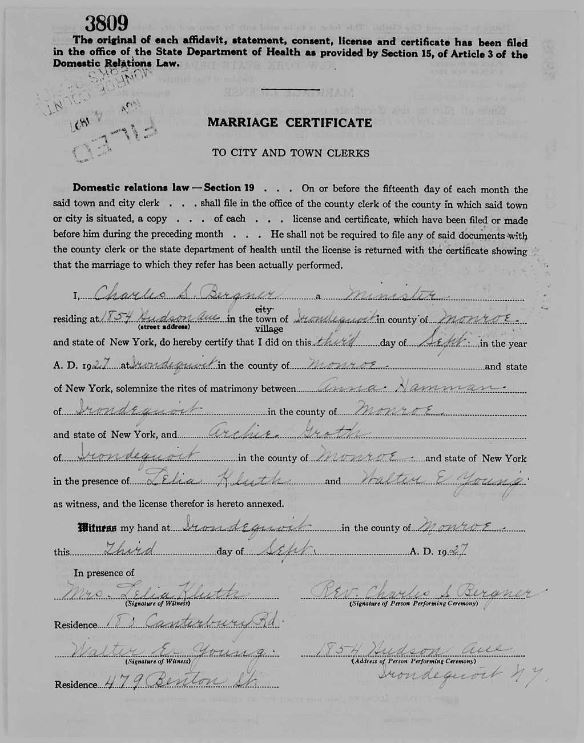 3809
The original of each affidavit, statement, consent, license and certificate has been filed
in the office of the State Department of Health as provided by Section 15, of Article 3 of the
Domestic Relations Law.
FILED
MARRIAGE CERTIFICATE
TO CITY AND TOWN CLERKS
Domestic relations law—Section 19 . . . On or before the fifteenth day of each month the
said town and city clerk . . . shall file in the office of the county clerk of the county in which said town
or city is situated, a copy . . . of each . . . license and certificate, which have been filed or made
before him during the preceding month . . . He shall not be required to file any of said documents with
the county clerk or the state department of health until the license is returned with the certificate showing
that the marriage to which they refer has been actually performed.
I, Charles S Bergner a Minister
residing at 1854 Hudson Ave in the city town of village Irondequoit in county of Monroe
(street address)
and state of New York, do hereby certify that I did on this third day of Sept. in the year
A. D. 1927 at Irondequoit in the county of Monroe and state
of New York, solemnize the rites of matrimony between Anna Hamman
of Irondequoit in the county of Monroe
and state of New York, and Archie Groth
of Irondequoit in the county of Monroe and state of New York
in the presence of Lelia Kluth and Walter E Young
as witness, and the license therefor is hereto annexed.
Witness my hand at Irondequoit in the county of Monroe
this Third day of Sept. A. D. 1927
In presence of
Mrs. Lelia Kluth Rev. Charles S Bergner
(Signature of Witness) (Signature of Person Performing Ceremony)
Residence Canterbury Rd.
Walter E. Young 1854 Hudson Ave
(Signature of Witness) (Address of Person Performing Ceremony)
Irondequoit N.Y.
Residence 479 Benton St.